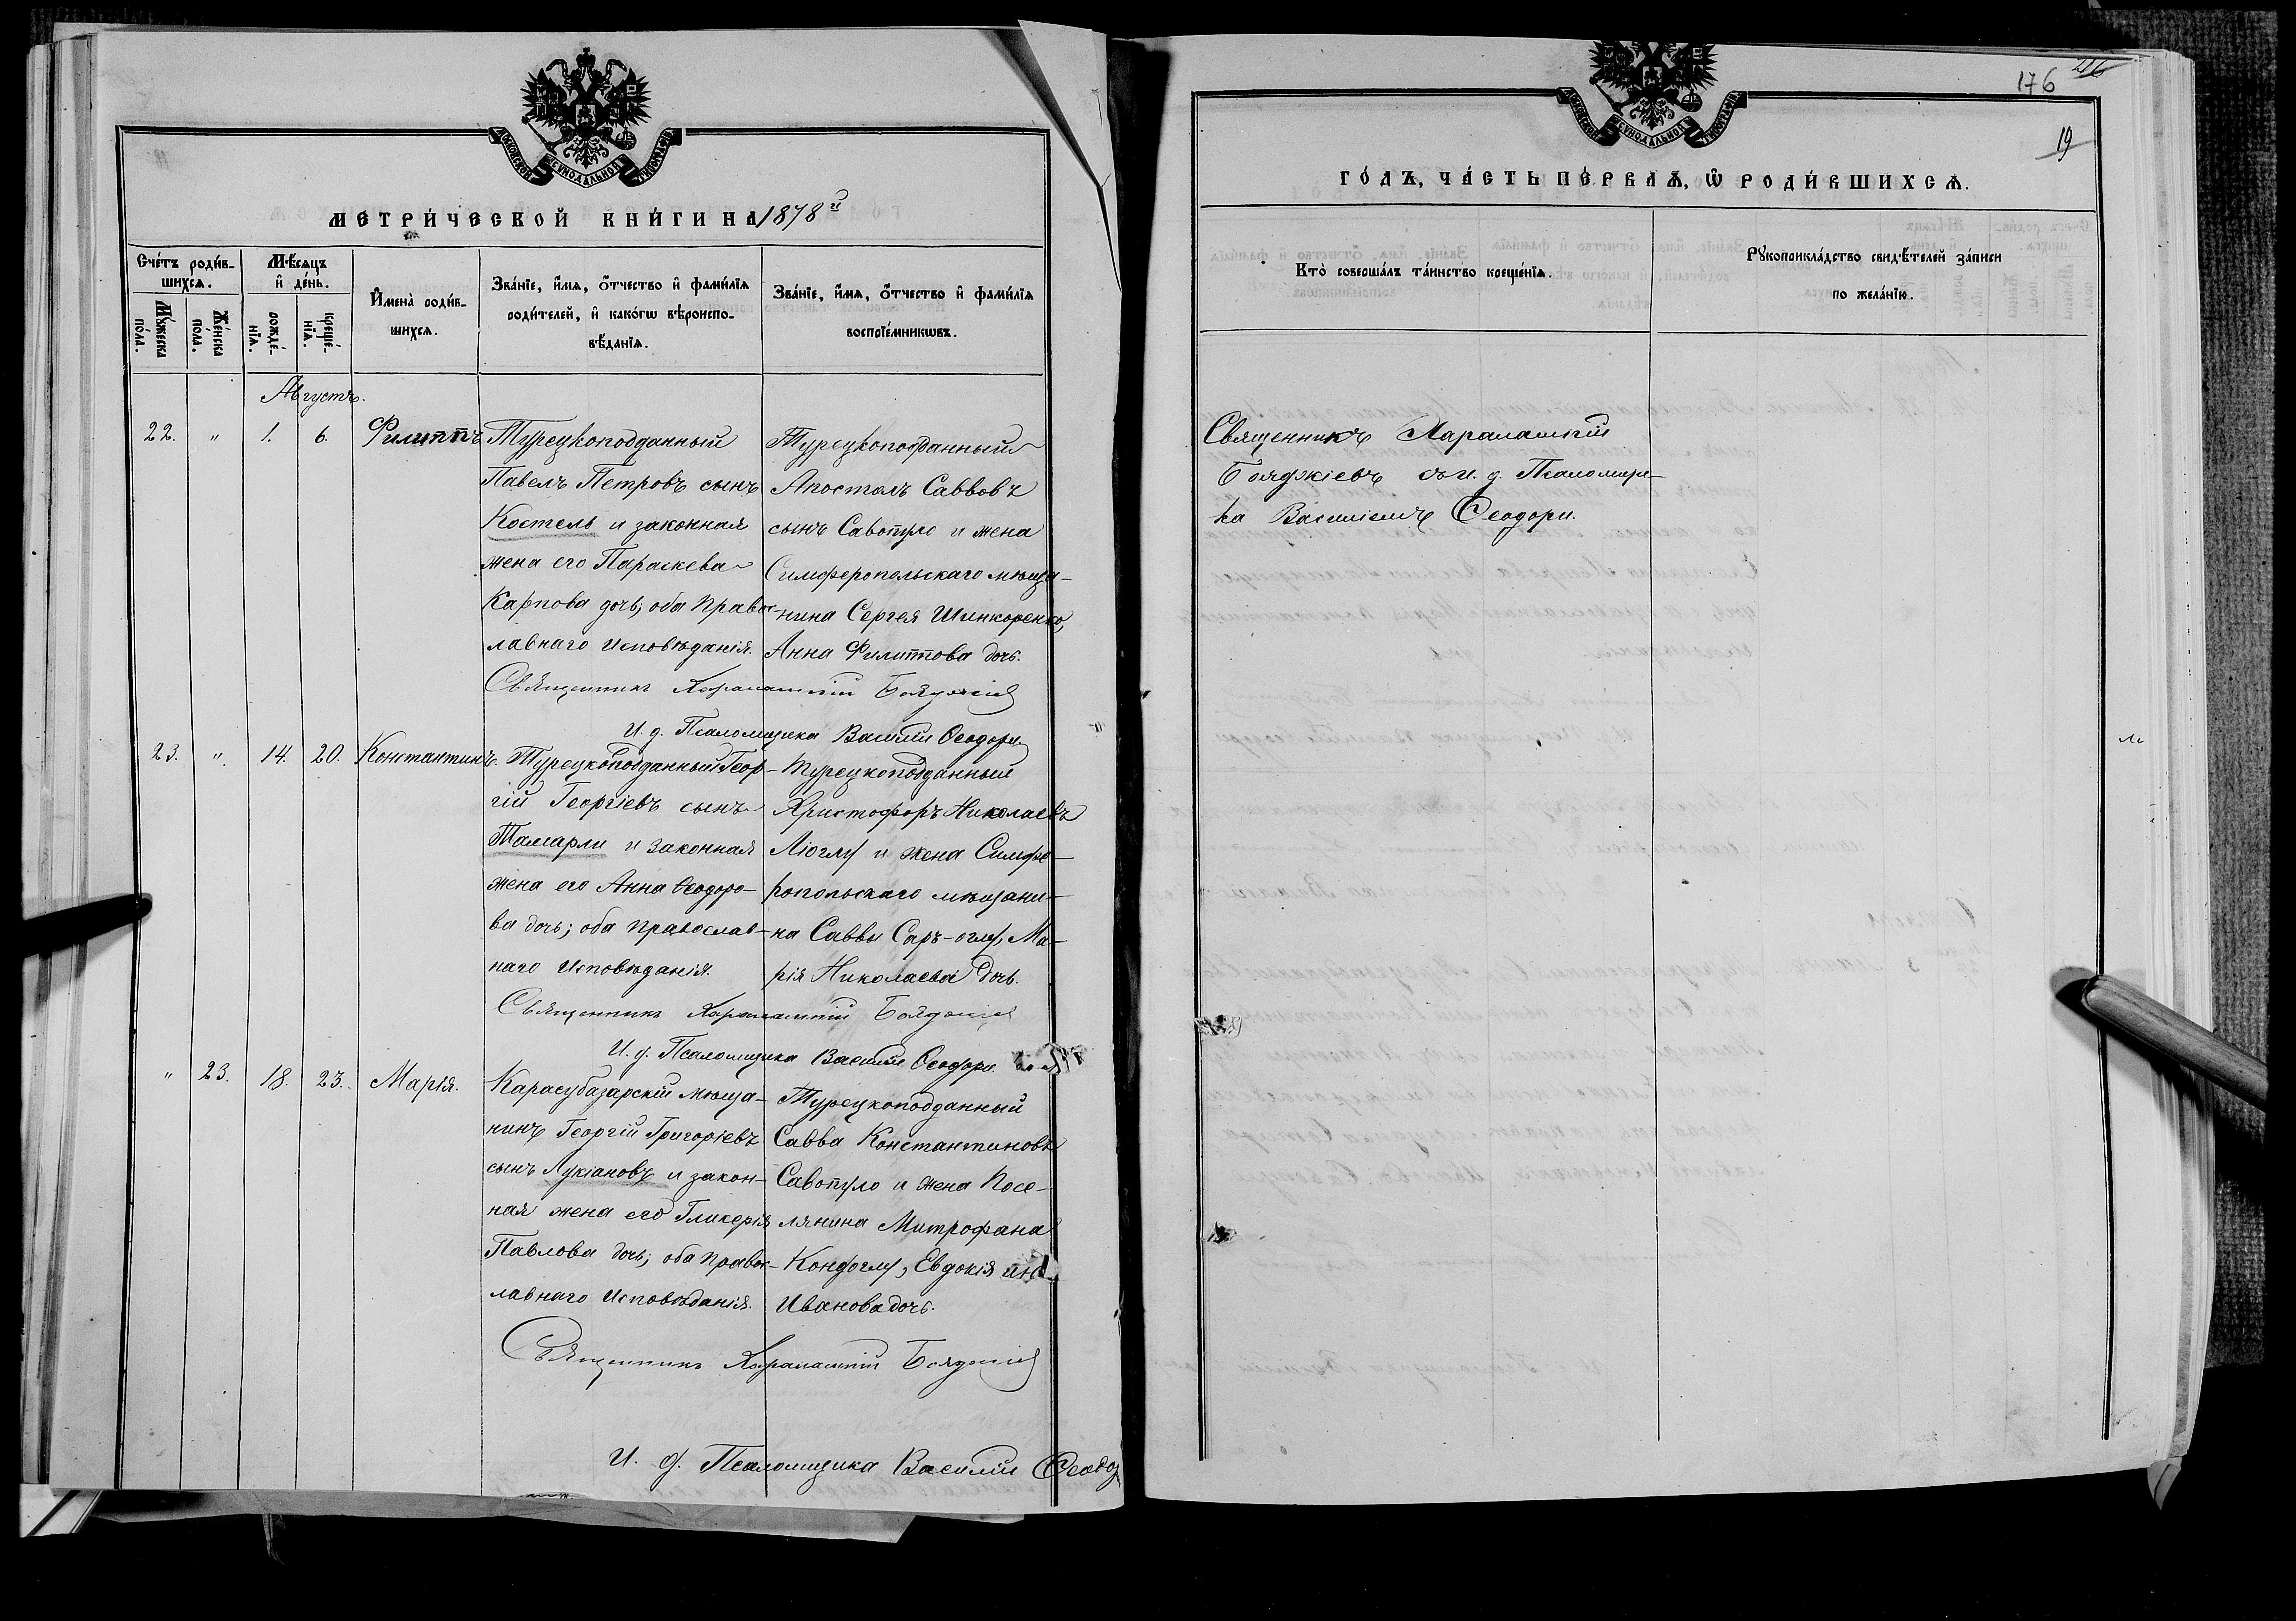 МОСКОВСКОЙ СѴНОДАЛЬНОЙ ТИПОГРАФІИ
МЕТРИ́ЧЕСКОЙ КНИ́ГИ НА 1878й
Сче́тъ роди́в-
шихсѧ.
Мѣ́сѧцъ
и҆ де́нь.
Мꙋ́жеска
по́ла.
Же́нска
по́ла.
рожде́-
нїѧ.
креще́-
нїѧ.
И҆мена̀ роди́в-
шихсѧ.
Зва́нїе, и҆́мѧ, ѻ҆́тчество и҆ фами́лїѧ
роди́телей, и҆ како́гѡ вѣроиспо-
вѣ́данїѧ.
Зва́нїе, и҆́мѧ, ѻ҆́тчество и҆ фами́лїѧ
воспрїе́мникѡвъ.
Августъ.
22. " 1. 6. Филиппъ
Турецкоподданный
Павелъ Петровъ сынъ
Костель и законная
жена его Параскева
Карпова дочь; оба Правос-
лавнаго Исповѣданія.
Турецкоподданный
Апостолъ Саввовъ
сынъ Савопуло и жена
Симферопольскаго мѣща-
нина Сергея Шинкоренко,
Анна Филиппова дочь.
Священникъ Харалампій Бояджіев
И. д. Псаломщика Василій Ѳеодори
23. " 14. 20. Константинъ.
Турецкоподданный Геор-
гій Георгіевъ сынъ
Тамарли и законная
жена его Анна Ѳеодоро-
ва дочь; оба Православ-
наго Исповѣданія.
Турецкоподданный
Христофоръ Николаевъ
Ліоглу и жена Симфе-
ропольскаго мѣщани-
на Саввы Саръ-оглу, Ма-
рія Николаева дочь.
Священникъ Харалампій Бояджіев
И. д. Псаломщика Василій Ѳеодори.
" 23. 18. 23. Марія.
Карасубазарскій мѣща-
нинъ Георгій Григоріевъ
сынъ Лукіановъ и закон-
ная жена его Гликерія
Павлова дочь; оба Правос-
лавнаго Исповѣданія.
Турецкоподданный
Савва Константиновъ
Савопуло и жена Посе-
лянина Митрофана
Кондоглу, Евдокія
Иванова дочь.
Священникъ Харалампій Бояджіев
И. д. Псаломщика Василій Ѳеодо
176
216
19
МОСКОВСКОЙ СѴНОДАЛЬНОЙ ТИПОГРАФІИ
ГО́ДЪ, ЧА́СТЬ ПЕ́РВАѦ, Ѡ҆ РОДИ́ВШИХСѦ.
Кто̀ соверша́лъ та́инство креще́нїѧ.
Рꙋкоприкла́дство свидѣ́телей за́писи
по жела́нїю.
Священникъ Харалампій
Бояджіевъ съ И. д. Псаломщи-
ка Василіемъ Ѳеодори.